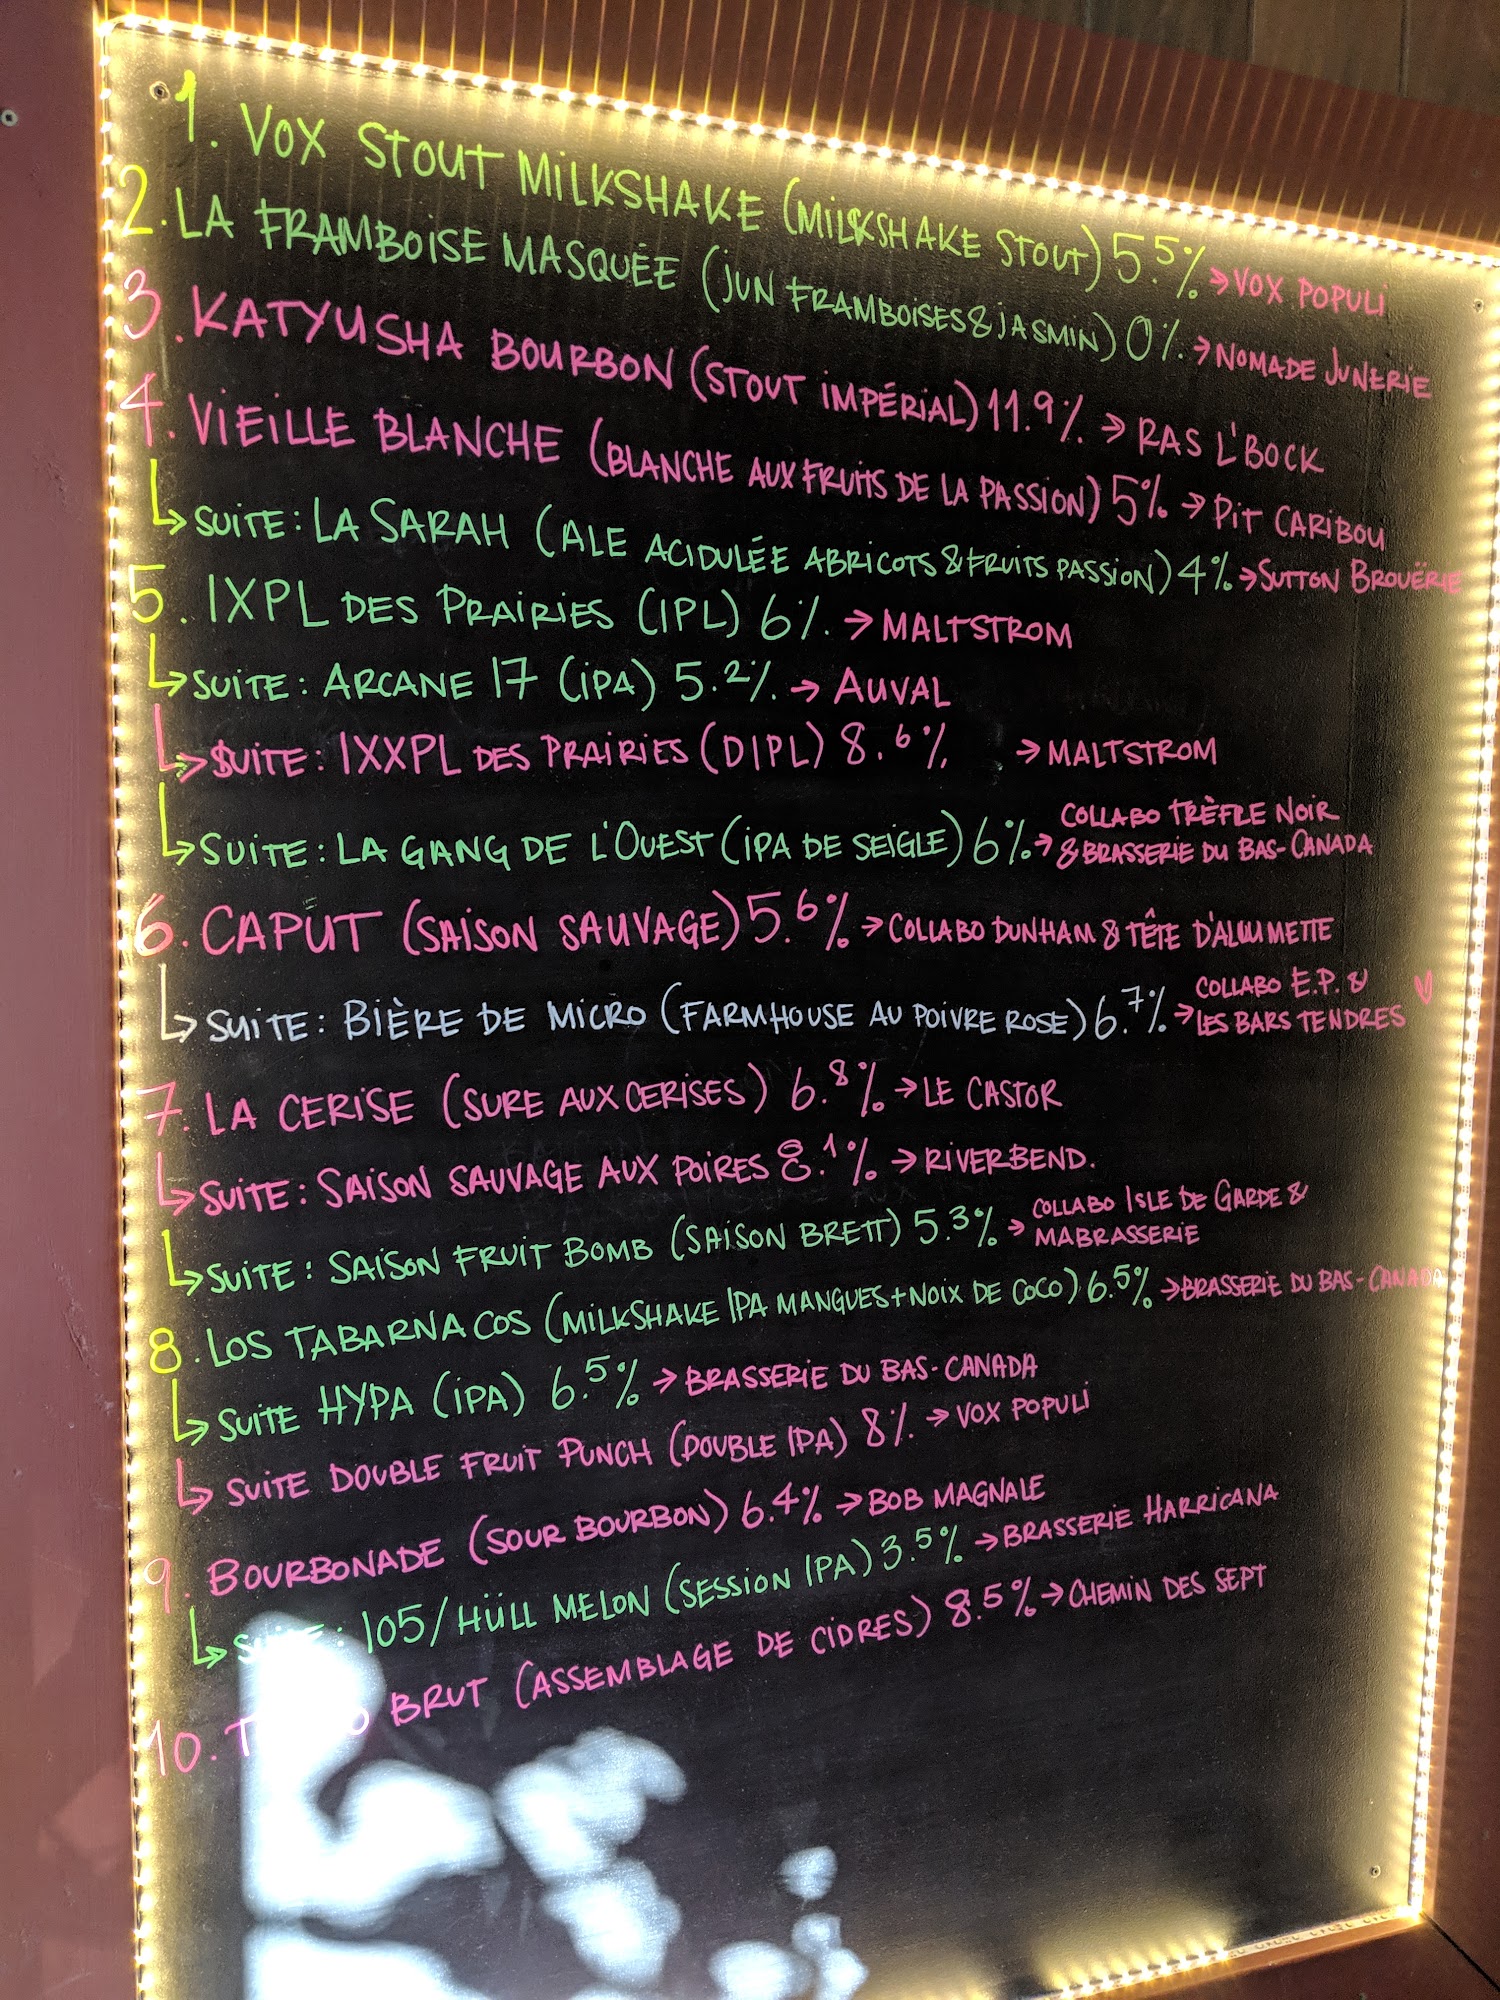 1. VOX STOUT MILKSHAKE (MILKSHAKE STOUT) 5.5% → VOX POPULI
2. LA FRAMBOISE MASQUÉE (JUN FRAMBOISES & JASMIN) 0% → NOMADE JUNERIE
3. KATYUSHA BOURBON (STOUT IMPÉRIAL) 11.9% → RAS L'BOCK
4. VIEILLE BLANCHE (BLANCHE AUX FRUITS DE LA PASSION) 5% → PIT CARIBOU
↳ SUITE: LA SARAH (ALE ACIDULÉE ABRICOTS & FRUITS PASSION) 4% → SUTTON BROUËRIE
5. IXPL DES PRAIRIES (IPL) 6% → MALTSTROM
↳ SUITE: ARCANE 17 (IPA) 5.2% → AUVAL
↳ SUITE: IXXPL DES PRAIRIES (DIPL) 8.6% → MALTSTROM
↳ SUITE: LA GANG DE L'OUEST (IPA DE SEIGLE) 6% → COLLABO TRÈFLE NOIR
& BRASSERIE DU BAS-CANADA
6. CAPUT (SAISON SAUVAGE) 5.6% → COLLABO DUNHAM & TÊTE D'ALLUMETTE
↳ SUITE: BIÈRE DE MICRO (FARMHOUSE AU POIVRE ROSE) 6.7% → COLLABO E.P. &
LES BARS TENDRES ♡
7. LA CERISE (SURE AUX CERISES) 6.8% → LE CASTOR
↳ SUITE: SAISON SAUVAGE AUX POIRES 8.1% → RIVERBEND.
↳ SUITE: SAISON FRUIT BOMB (SAISON BRETT) 5.3% → COLLABO ISLE DE GARDE &
MABRASSERIE
8. LOS TABARNACOS (MILKSHAKE IPA MANGUES + NOIX DE COCO) 6.5% → BRASSERIE DU BAS-CANADA
↳ SUITE HYPA (IPA) 6.5% → BRASSERIE DU BAS-CANADA
↳ SUITE DOUBLE FRUIT PUNCH (DOUBLE IPA) 8% → VOX POPULI
9. BOURBONADE (SOUR BOURBON) 6.4% → BOB MAGNALE
↳ SUITE: 105/HÜLL MELON (SESSION IPA) 3.5% → BRASSERIE HARRICANA
10. BRUT (ASSEMBLAGE DE CIDRES) 8.5% → CHEMIN DES SEPT